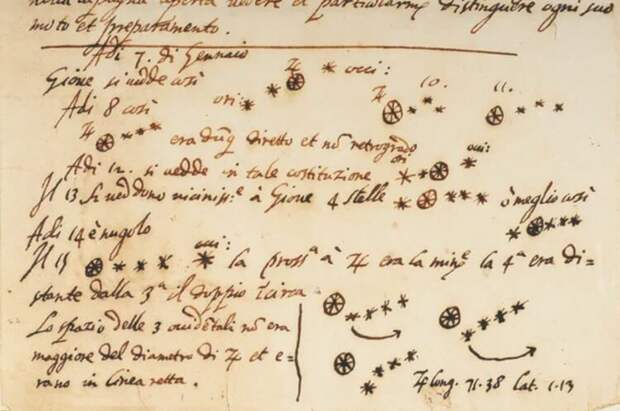 nella capagna aperta vedere et particularmᵉ distinguere ogni suo
moto et preparamento.
Adi 7. di Gennaio
♃ occi:
Giove si vedde così
ori:
Adi 8 così
♃ 10. 11.
♃ era dūq diretto et nō retrogrado
ori: occi:
Adi 12. si vedde in tale costituzione
Il 13 si veddono viciniss.ᵉ à Giove 4 stelle ò meglio così
Adi 14 è nugolo
occi:
Il 15 la prossᵃ à ♃ era la minᵉ la 4ᵃ era di=
stante dalla 3ᵃ il doppio Icirca
Lo spazio delle 3 occidētali nō era
maggiore del diametro di ♃ et e=
rano in linea retta.
♃ long. 71.38 Lat. 1.13